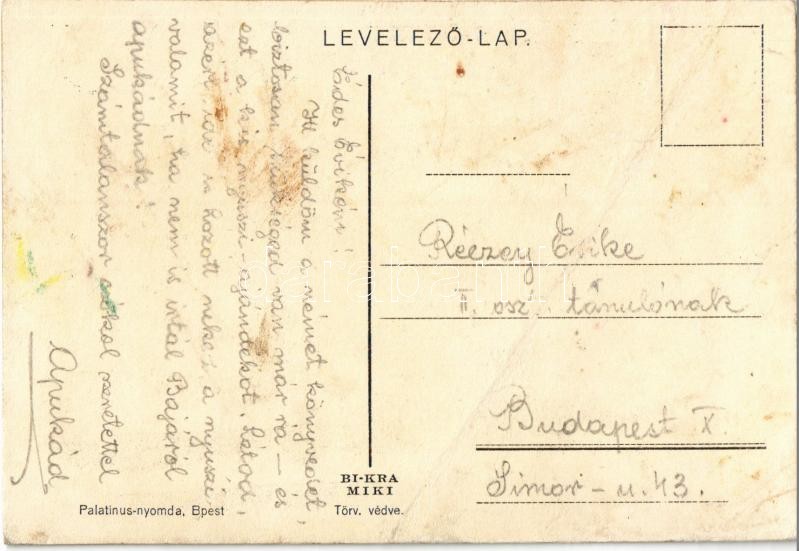 LEVELEZŐ-LAP.
Édes Évikém!
Itt küldöm a német könyvedet,
biztosan szükséged van már rá – és
ezt a kis nyuszi-ajándékot. Látod,
azért is hozott neked a nyuszi
valamit, ha nem is írtál Bajáról
apukádnak!
Számtalanszor csókol szeretettel
Apukád
Réczey Évike
II. oszt. tanulónak
Budapest X.
Simor-u. 43.
BI-KRA
MIKI
Palatinus-nyomda, Bpest
Törv. védve.